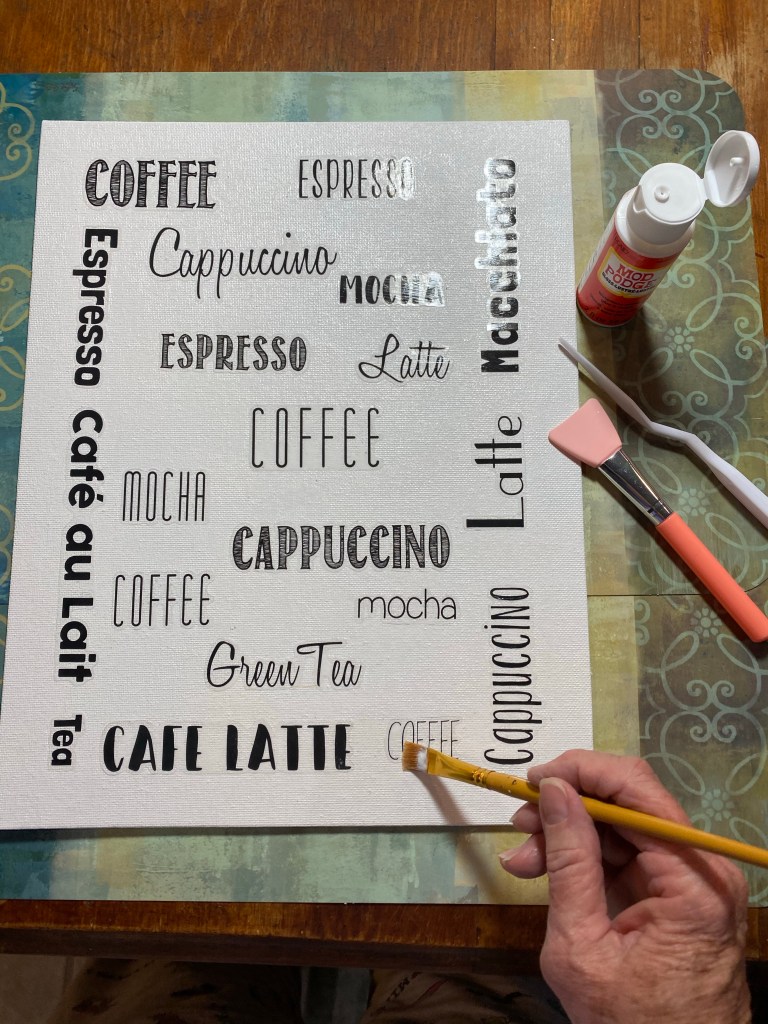 COFFEE
ESPRESSO
Macchiato
Espresso
Cappuccino
MOCHA
ESPRESSO
Latte
COFFEE
Café au Lait
Latte
MOCHA
CAPPUCCINO
COFFEE
mocha
Cappuccino
Green Tea
Tea
CAFE LATTE
COFFEE
MOD
PODGE